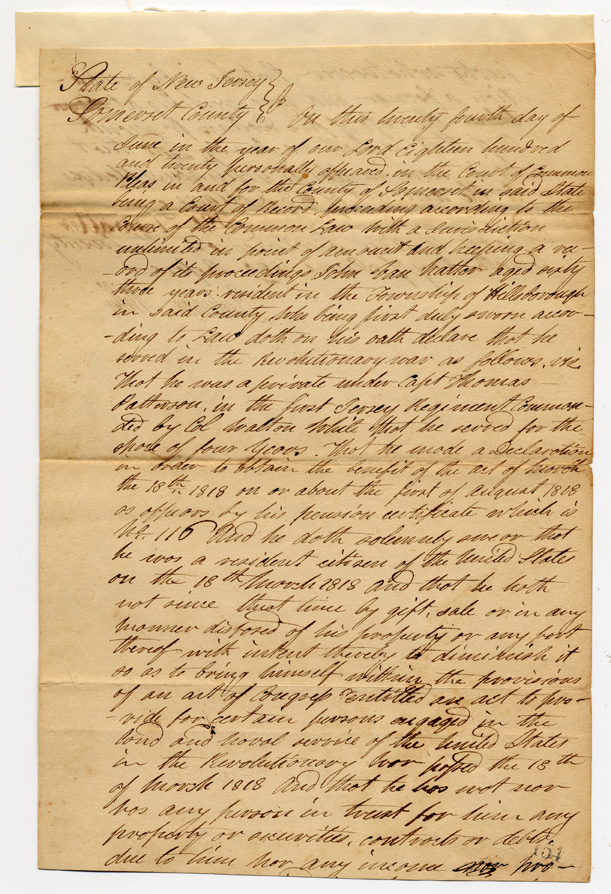 State of New Jersey }
Somerset County } ss On this twenty fourth day of
June in the year of our Lord Eighteen hundred
and twenty personally appeared in the Court of Common
Pleas in and for the County of Somerset in said State
being a Court of Record, proceeding according to the
Course of the Common Law with a Jurisdiction
unlimited in point of amount and keeping a re-
-cord of its proceedings John Van Natter aged sixty
three years resident in the Township of Hillsborough
in said County who being first duly sworn accor-
-ding to Law doth on his oath declare that he
served in the Revolutionary war as follows, viz.
That he was a private under Capt Thomas
Patterson, in the first Jersey Regiment Comman-
ded by Col Walton White that he served for the
space of four Years. That he made a Declaration
in order to obtain the benefit of the act of March
the 18th 1818 on or about the first of August 1818
as appears by his pension certificate which is
No. 116 And he doth solemnly swear that
he was a resident citizen of the United States
on the 18th March 1818 And that he hath
not since that time by gift, sale or in any
manner disposed of his property or any part
thereof with intent thereby to diminish it
so as to bring himself within the provisions
of an act of Congress Entitled an act to pro-
-vide for certain persons engaged in the
land and naval service of the United States
in the Revolutionary War passed the 18th
of March 1818 And that he has not nor
has any person in trust for him any
property or securities, contracts or debts
due to him nor any income pro-
151